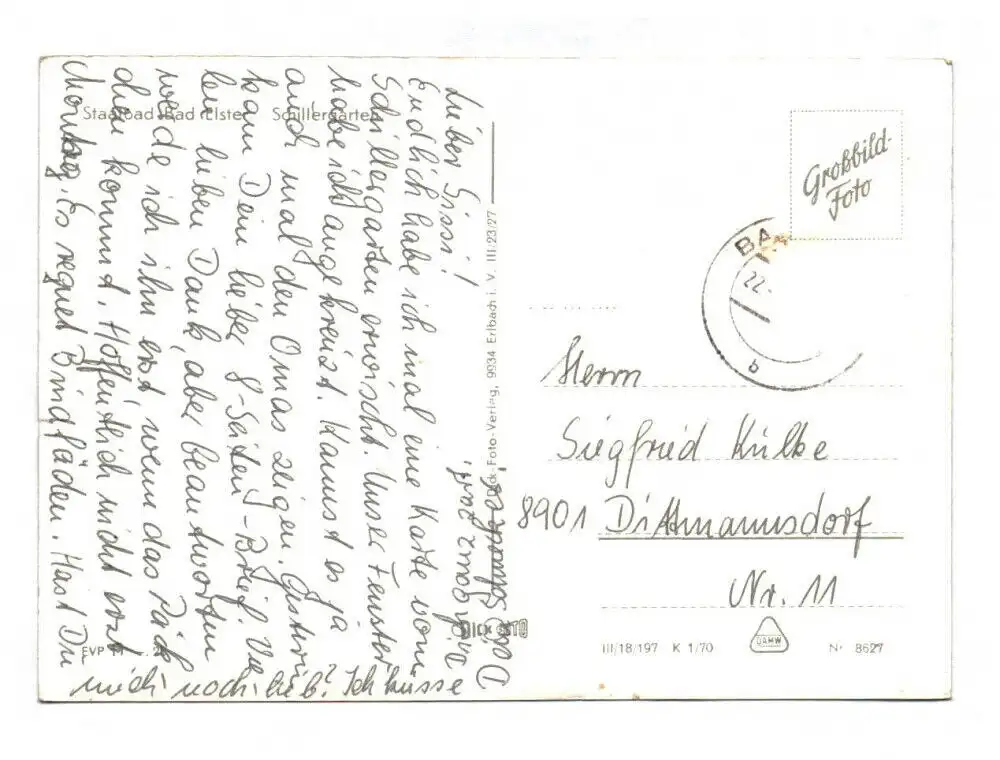 Staatbad Bad Elster Schillergarten
Lieber Sissi!
Endlich habe ich mal eine Karte vom
Schillergarten erwischt. Unser Fenster
habe ich angekreuzt. Kannst es ja
auch mal den Omas zeigen. Gestern
kam Dein lieber 8-Seiten-Brief. Vie
len lieben Dank, aber beantworten
werde ich ihn erst, wenn das Päck
chen kommt. Hoffentlich nicht erst
Montag. Es regnet Bindfäden. Hast Du
mich noch lieb? Ich küsse
Dich ganz zart,
Foto-Verlag, 9934 Erlbach i. V. III/23/27
DICK FOTO
EVP M
Großbild-
Foto
BA
22.
b
Herrn
Siegfried Külke
8901 Dittmannsdorf
Nr. 11
III/18/197 K 1/70
DAMW
Nr 8627